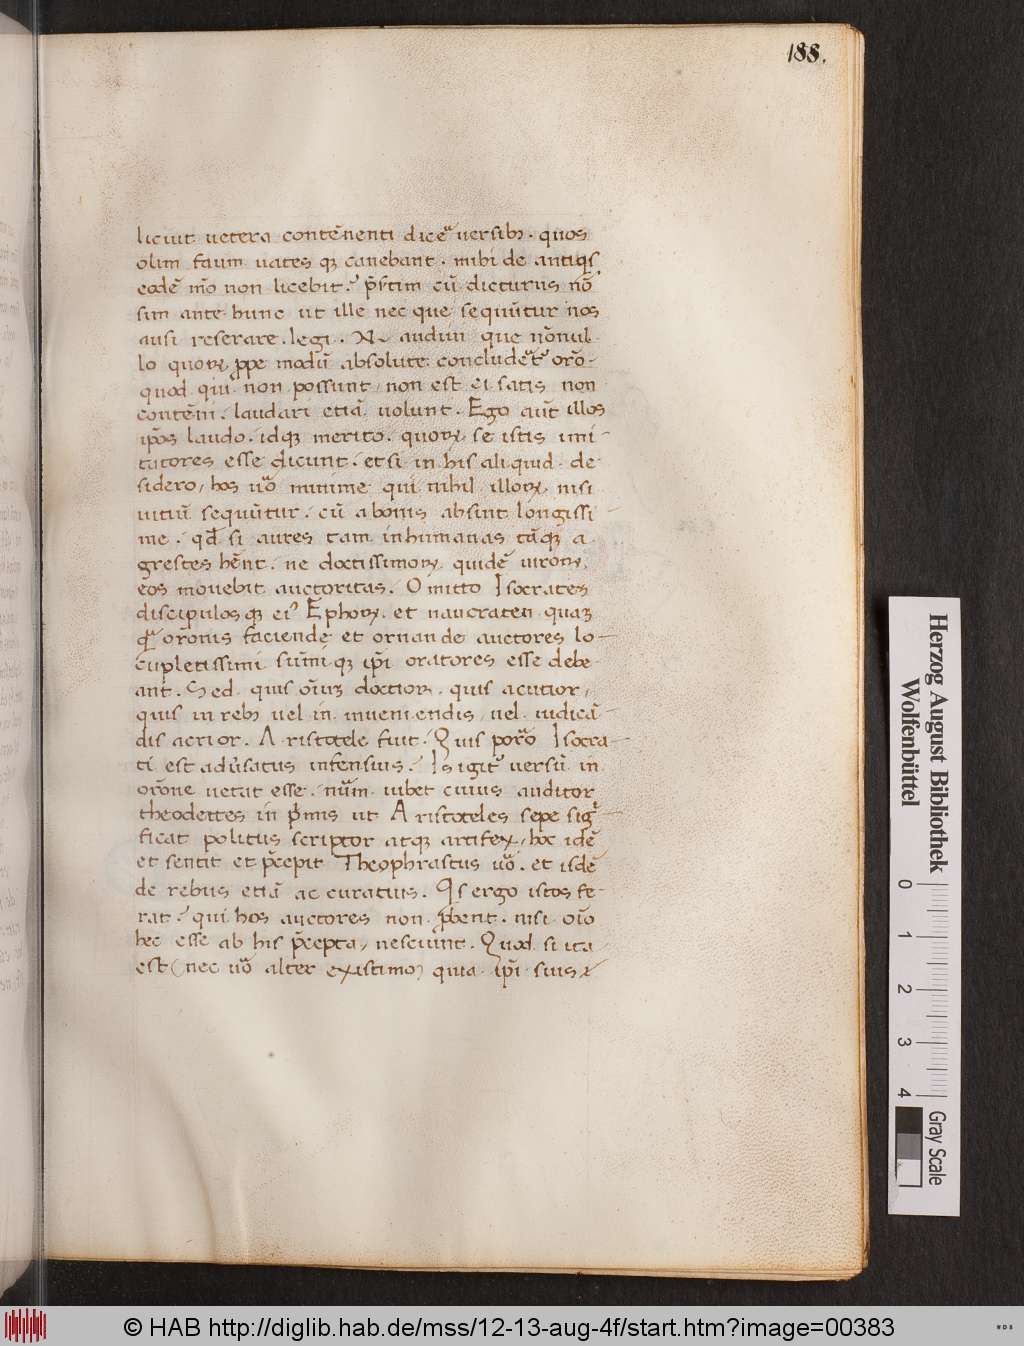 188.
liciut uetera contēnenti dicet᷑ uersibꝫ. quos
olim fauni uates qꝫ canebant. mihi de antiqis
eodē mō non licebit? p̄stim cū dicturus nō
sim ante hunc ut ille nec que sequūtur nos
ausi reserare. legi. Nā audiui que nōnul
lo quoꝝ ꝓpe modū absolute concludet᷑ orō-
quod qui non possunt, non est ei satis non
contēni. laudari etiā uolunt. Ego aut̄ illos
ip̄os laudo. idqꝫ merito. quoꝝ se istis imi-
tatores esse dicunt. etsi in his aliquid de
sidero, hos uō minime qui nihil illoꝝ nisi
uitiū sequūtur. cū a bonis absint longissi
me. qđ si aures tam inhumanas tāqꝫ a
grestes hn̄t. ne doctissimoꝝ quidē uiroꝝ
eos mouebit auctoritas. Omitto Isocrates
discipulos qꝫ ei⁹ Ephoꝝ. et naucraten quāqꝫ
orōnis faciende et ornande auctores lo-
cupletissimi sum̄i qꝫ ip̄i oratores esse debe
ant. Sed quis oīuꝫ doctior. quis acutior,
quis in rebꝫ uel in inueniendis, uel iudicā-
dis acrior. Aristotele fuit. Quis porro Isocra-
ti est aduʼsatus infensius? Is igit᷑ uersū in
orōne uetat esse. num̄ iubet cuius auditor
theodectes in p̄mis ut Aristoteles sepe sig-
ficat politus scriptor atqꝫ artifex, hoc idē
et sentit et p̄cepit Theophrastus uō. et isdē
de rebus etiā accuratius. Qs ergo istos fe-
rat? qui hos auctores non ꝓbent. nisi oīo
hec esse ab his p̄cepta, nesciunt. Quod si ita
est (nec uō alter existimo) quia ip̄i suis
Herzog August Bibliothek
Wolfenbüttel
0 1 2 3 4
Gray Scale
© HAB http://diglib.hab.de/mss/12-13-aug-4f/start.htm?image=00383